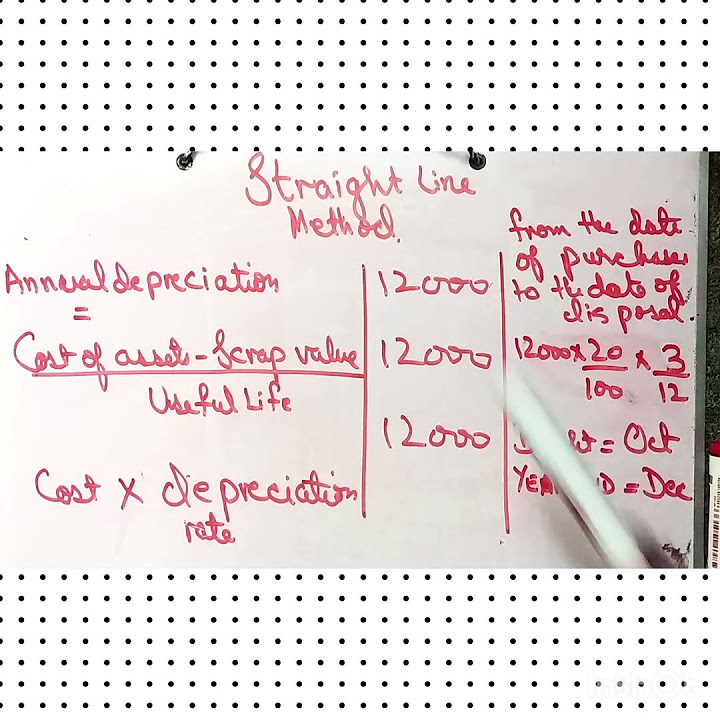 Straight Line
Method.
Annual depreciation
=
Cost of asset - Scrap value
Useful Life
Cost x depreciation
rate
12000
12000
12000
from the date
of purchase
to the date of
disposal.
12000 x 20 x 3
100 12
= Oct
= Dec